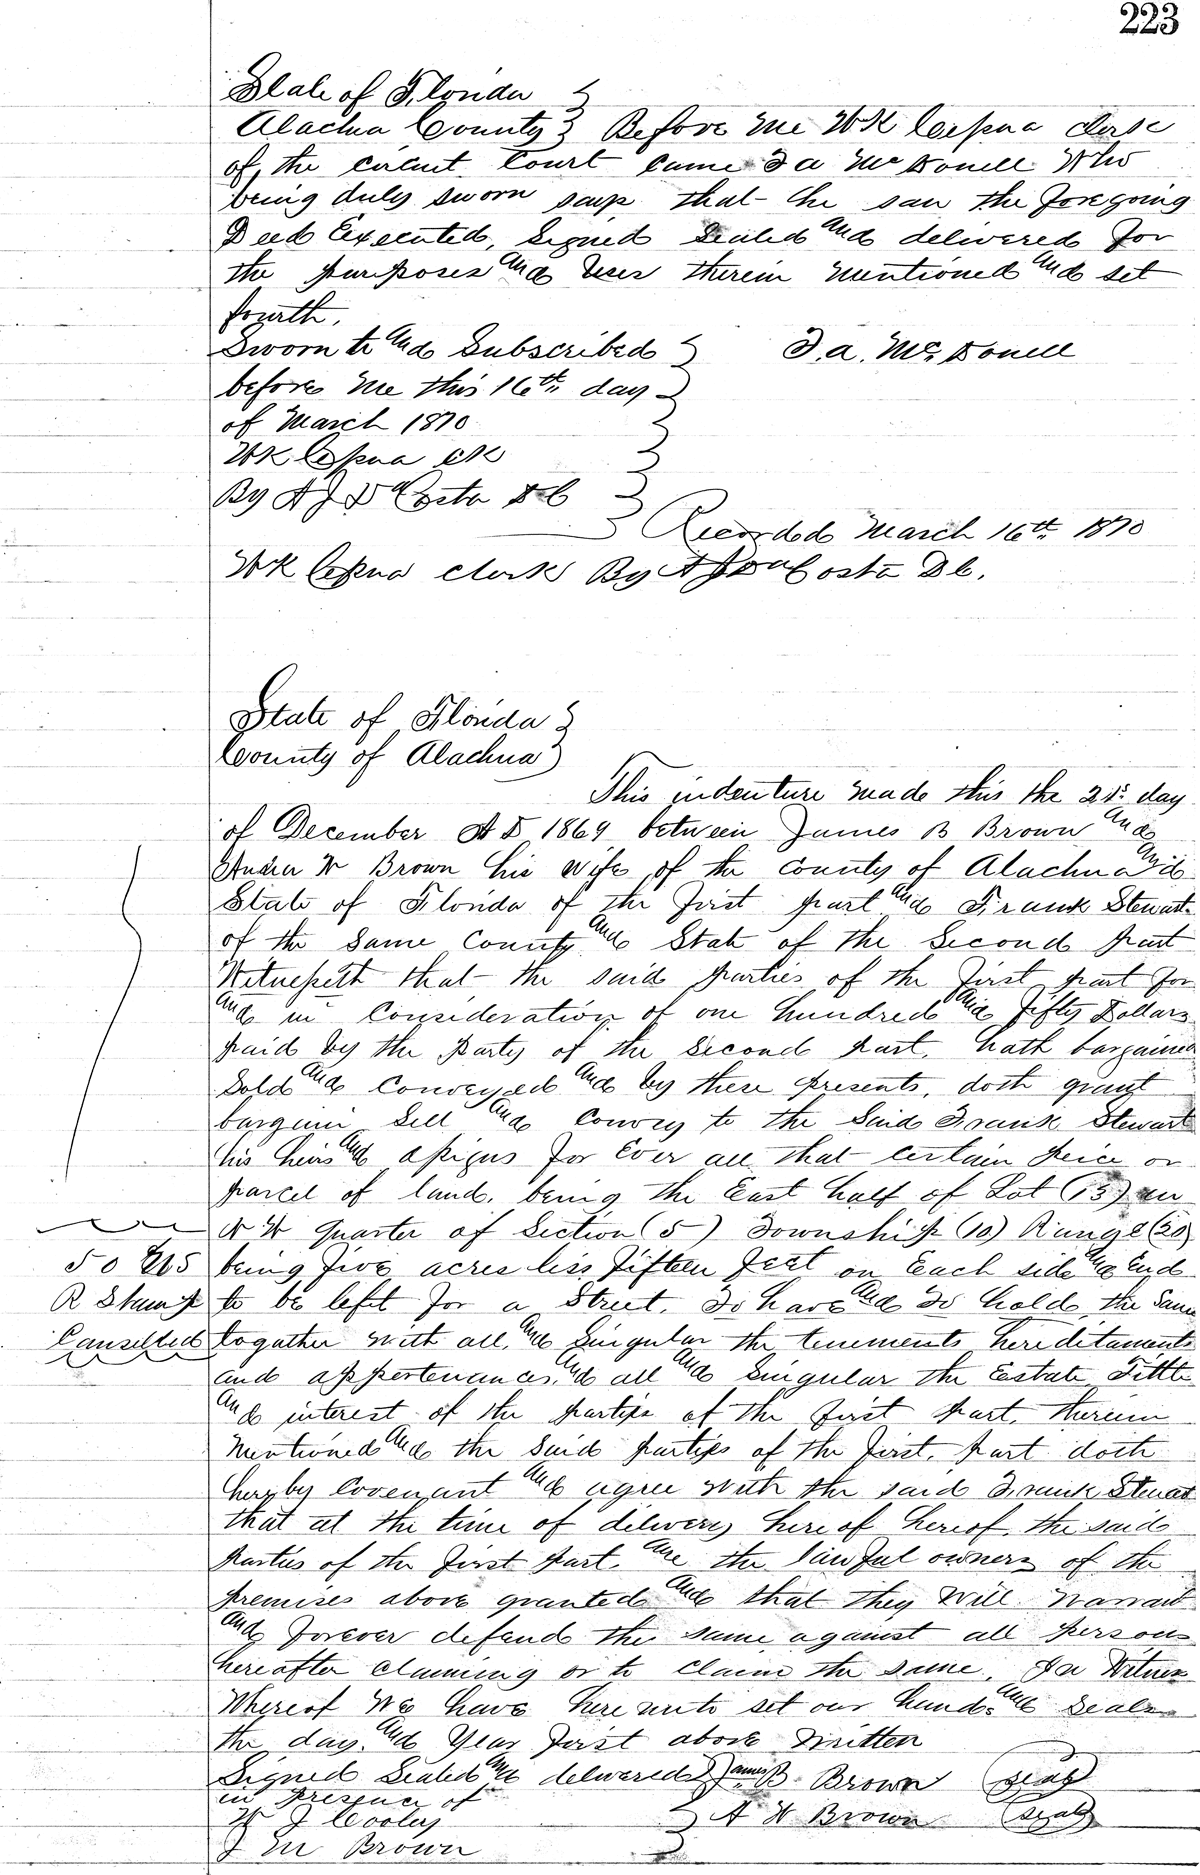 223
State of Florida
Alachua County } Before me W K Cessna clerk
of the circuit Court came T a McDonell Who
being duly sworn says that he saw the foregoing
Deed Executed, Signed Sealed and delivered for
the purposes and uses therein mentioned and set
fourth.
Sworn to and Subscribed } T. a. McDonell
before me this 16th day
of March 1870
W K Cessna clk
By A J DaCosta D C
Recorded March 16th 1870
W K Cessna clerk By A J DaCosta D C.
State of Florida }
County of Alachua }
This indenture made this the 21st day
of December A D 1869 between James B Brown and
W Brown his wife of the county of Alachua and
State of Florida of the first part and Frank Stewart
of the Same County and State of the Second part
Witnesseth that the said parties of the first part for
and in Consideration of one hundred and fifty Dollars
paid by the Party of the Second part, hath bargained
Sold and Conveyed and by these presents, doth grant
bargain Sell and Convey to the Said Frank Stewart
his heirs and assigns for Ever all that certain peice or
parcel of land, being the East half of Lot (13) in
N W quarter of Section (5) Township (10) Range (20)
50 cts being five acres less fifteen feet on Each side and End
R Stamp to be left for a Street. To have and To hold, the Same
Canselled togather with all, and Singular the tenements hereditaments
and appertenances, and all and Singular the Estate Tittle
and interest of the parties of the first part, therein
mentioned and the Said parties of the first, part doth
hereby Covenant and agree with the said Frank Stewart
that at the time of dilivery here of hereof, the said
Parties of the first part, are the lawful owners of the
premises above granted and that they Will Warrant
and forever defend the same, against all persons
hereafter claiming or to claim the same, In Witness
Whereof We have here unto set our hands and Seals
the day, and Year first above written
Signed Sealed and delivered } James B. Brown (seal)
in presence of
W J Cooley } A W Brown (seal)
J M Brown